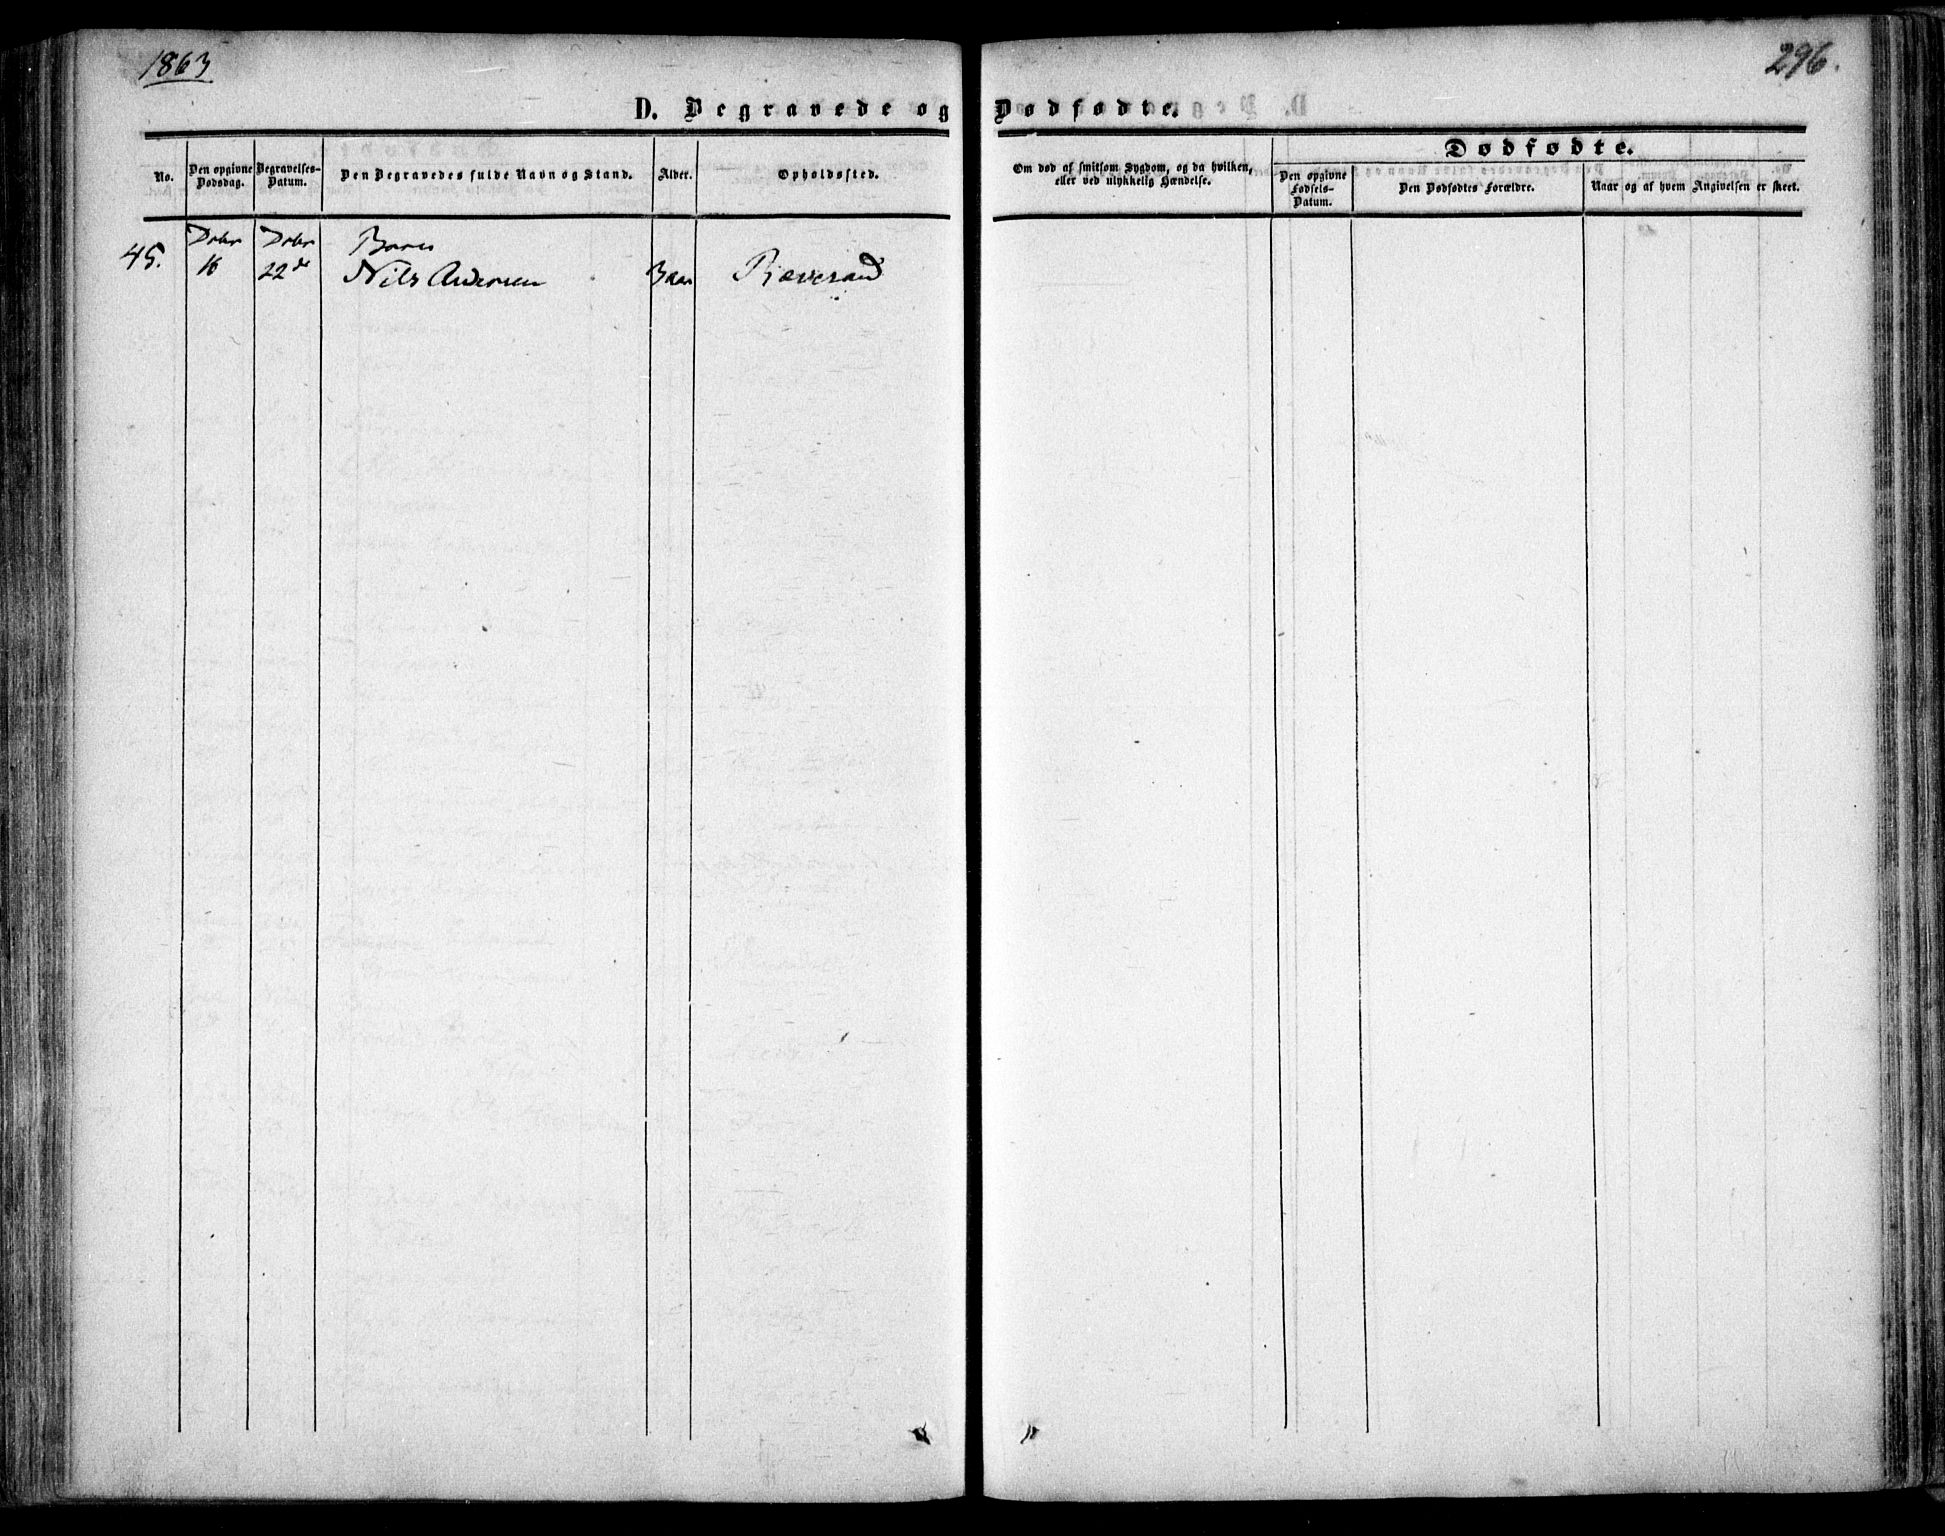 1863
296.
D. Begravede og Dødfødte.
Dødfødte.
No.
Den opgivne Dødsdag.
Begravelses-Datum.
Den Begravedes fulde Navn og Stand.
Alder.
Opholdssted.
Om død af smitsom Sygdom, og da hvilken,
eller ved ulykkelig Hændelse.
Den opgivne Fødsels-Datum.
Den Dødfødtes Forældre.
Naar og af hvem Angivelsen er skeet.
Dcbr Dcbr Barn
45. 16 22de Nils Andersen 3 aar